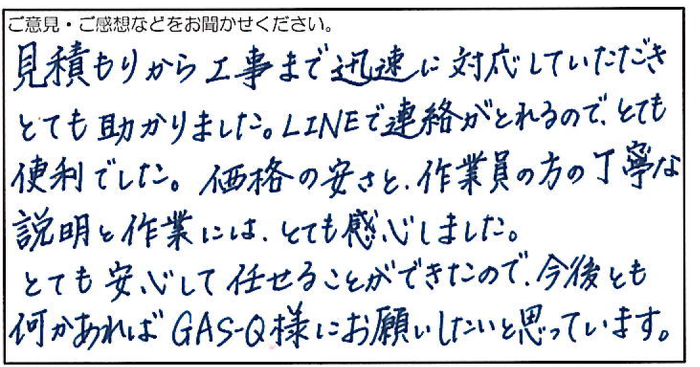 ご意見・ご感想などをお聞かせください。
見積もりから工事まで迅速に対応していただき
とても助かりました。LINEで連絡がとれるので、とても
便利でした。価格の安さと、作業員の方の丁寧な
説明と作業には、とても感心しました。
とても安心して任せることができたので、今後とも
何かあればGAS-Q様にお願いしたいと思っています。